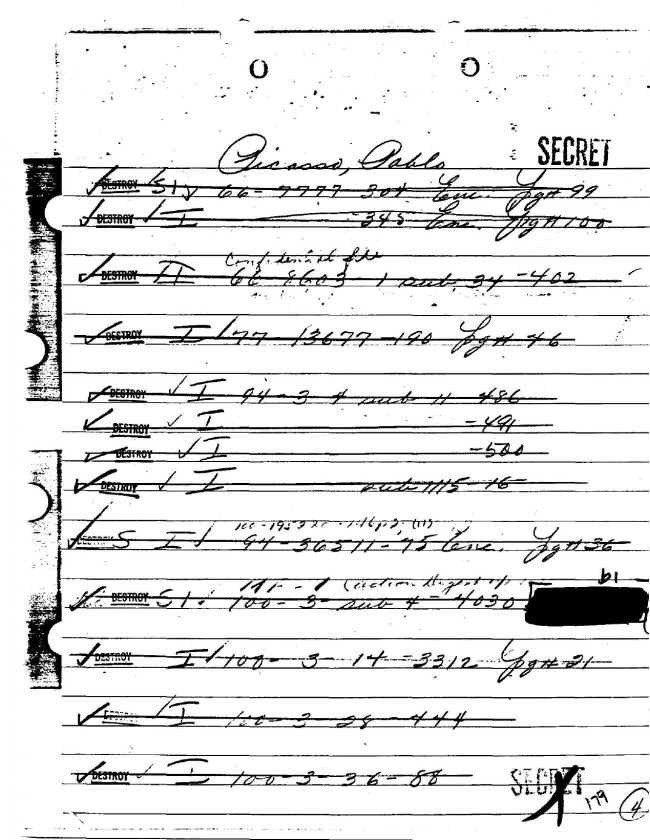 Picasso, Pablo SECRET
DESTROY SI 66-7777-304 Enc. Pg# 99
DESTROY I -345 Enc. Pg# 100
Confidential file
DESTROY II 66-8603-1 sub 34-402
DESTROY I 77-13677-190 Pg# 46
DESTROY I 94-3-4 sub 11-486
DESTROY I -491
DESTROY I -500
DESTROY I sub 1115-16
DESTROY S I 94-36511-75 Enc. Pg# 36
b1
DESTROY SI 100-3-sub 4-4030
DESTROY I 100-3-14-3312 Pg# 21
DESTROY I 100-3-28-444
DESTROY I 100-3-36-88
SECRET
179 4